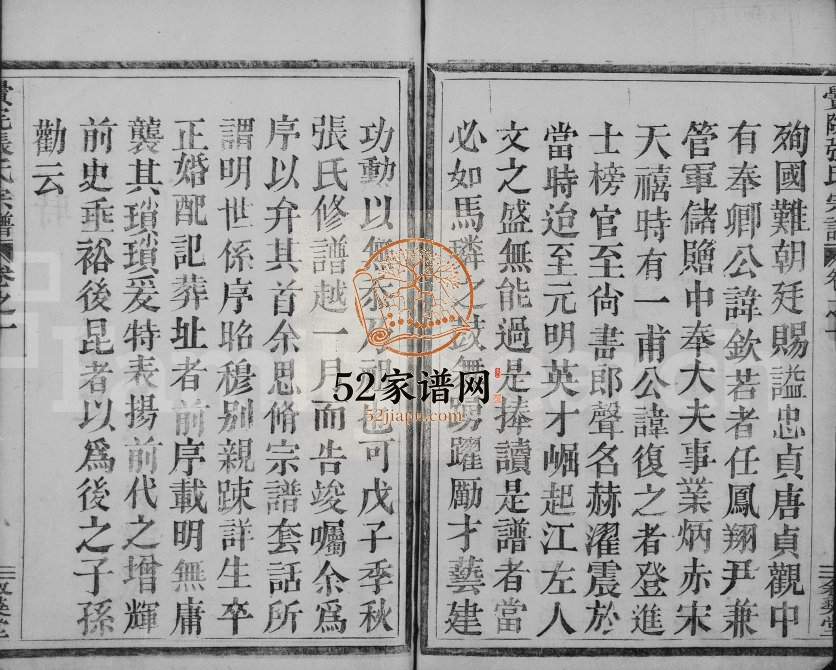 殉國難朝廷賜謚忠貞唐貞觀中
有奉卿公諱欽若者任鳳翔尹兼
管軍儲贍中奉大夫事業炳赤宋
天禧時有一甫公諱復之者登進
士榜官至尙書郎聲名赫濯震於
當時迨至元明英才崛起江左人
文之盛無能過是捧讀是譜者當
必如馬璘之 踴躍勵才藝建
功勳以無忝乃祖也可戊子季秋
張氏修譜越一月而告竣囑余爲
序以弁其首余思脩宗譜套話所
謂明世係序昭穆别親疎詳生卒
正婚配記葬址者前序載明無庸
襲其瑣瑣爰特表揚前代之增輝
前史垂裕後昆者以爲後之子孫
勸云
張氏宗譜 卷之一
52家谱网
52jiapu.com